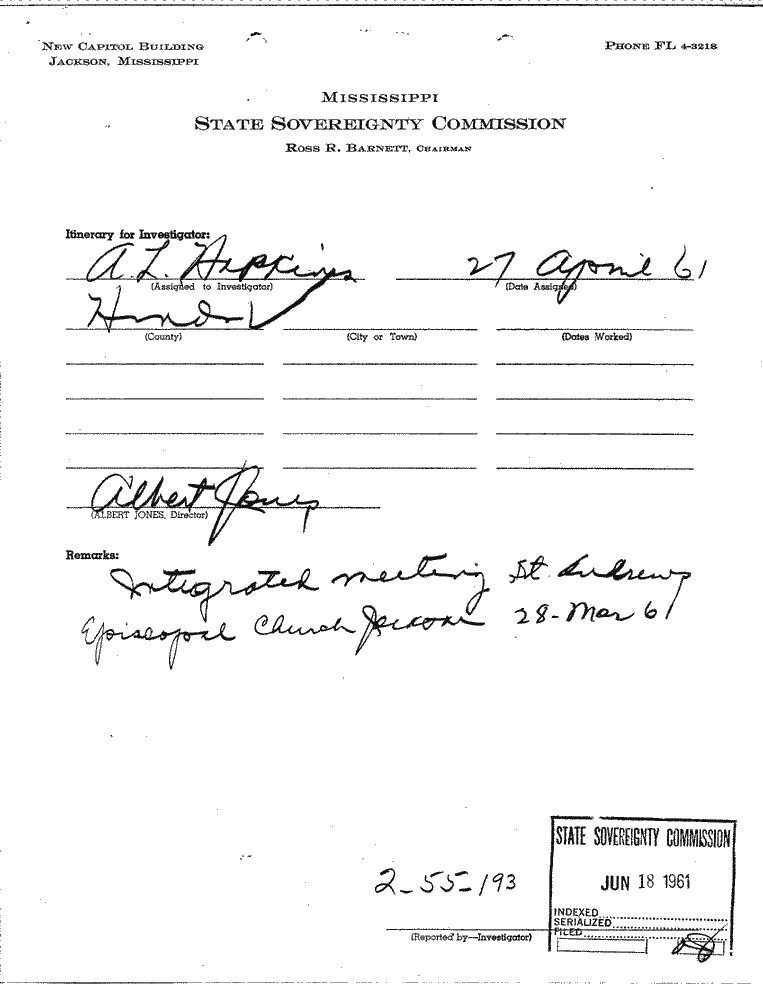 NEW CAPITOL BUILDING
JACKSON, MISSISSIPPI
PHONE FL 4-3218
MISSISSIPPI
STATE SOVEREIGNTY COMMISSION
ROSS R. BARNETT, CHAIRMAN
Itinerary for Investigator:
A.L. Hopkins 27 April 61
(Assigned to Investigator) (Date Assigned)
Hinds
(County) (City or Town) (Dates Worked)
Albert Jones
(ALBERT JONES, Director)
Remarks:
Integrated meeting St. Andrews
Episcopal Church Jackson 28-Mar 61
STATE SOVEREIGNTY COMMISSION
2-55-193
JUN 18 1961
INDEXED
SERIALIZED
FILED
(Reported by—Investigator)